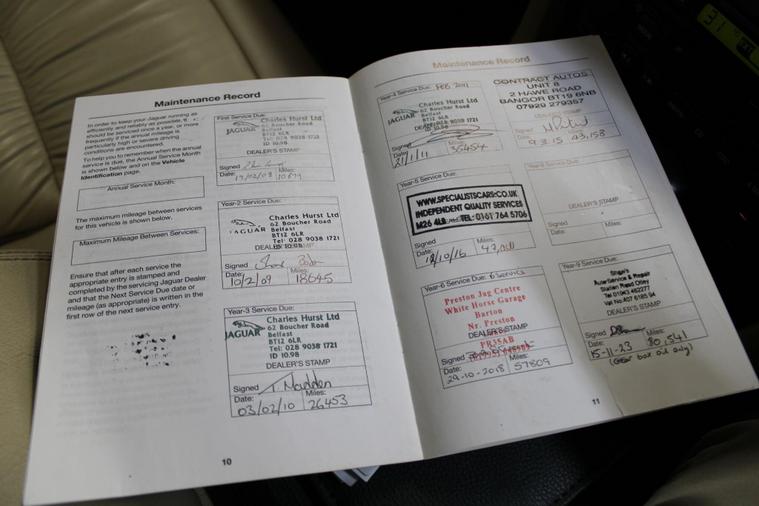 Maintenance Record
In order to keep your Jaguar running as
efficiently and reliably as possible, it
should be serviced once a year, or more
frequently if the annual mileage is
particularly high or severe driving
conditions are encountered.
To help you remember when the annual
service is due, the Annual Service Month
is shown below and on the Vehicle
Identification page.
Annual Service Month:
The maximum mileage between services
for this vehicle is shown below.
Maximum Mileage Between Services:
Ensure that after each service the
appropriate entry is stamped and
completed by the servicing Jaguar Dealer
and that the Next Service Due date or
mileage (as appropriate) is written in the
first row of the next service entry.
First Service Due:
JAGUAR
Charles Hurst Ltd
62 Boucher Road
Belfast
BT12 6LR
Tel: 028 9038 1721
ID 10.98
DEALER'S STAMP
Signed
Date: Miles:
Year-2 Service Due:
JAGUAR
Charles Hurst Ltd
62 Boucher Road
Belfast
BT12 6LR
Tel: 028 9038 1721
ID 10.98
DEALER'S STAMP
Signed
Date: Miles:
10/2/09 18645
Year-3 Service Due:
JAGUAR
Charles Hurst Ltd
62 Boucher Road
Belfast
BT12 6LR
Tel: 028 9038 1721
ID 10.98
DEALER'S STAMP
Signed T. Madden
Date: Miles:
03/02/10 26453
10
Maintenance Record
Year-4 Service Due: FEB 2011
JAGUAR
Charles Hurst Ltd
62 Boucher Road
Belfast
BT12 6LR
Tel: 028 9038 1721
ID 10.98
Signed
21/1/11 35454
Year-5 Service Due:
WWW.SPECIALISTSCARS.CO.UK
INDEPENDENT QUALITY SERVICES
M26 4LB TEL: 0161 764 5706
Signed
Date: Miles:
Year-6 Service Due: 6 Service
Preston Jag Centre
White Horse Garage
Barton
Nr. Preston
DEALER'S STAMP
PR35AB
Signed
Date: Miles:
29-10-2018 57809
CONTRACT AUTOS
UNIT 8
2 HAWE ROAD
BANGOR BT19 6NB
07920 279357
Signed
9 3 15 43,158
DEALER'S STAMP
Signed
Date: Miles:
Year-9 Service Due:
Auto Service & Repair
Station Road Otley
Tel 01943 462277
DEALER'S STAMP
Signed
Date: Miles:
15-11-23 80,541
(Gear box oil only)
11
31